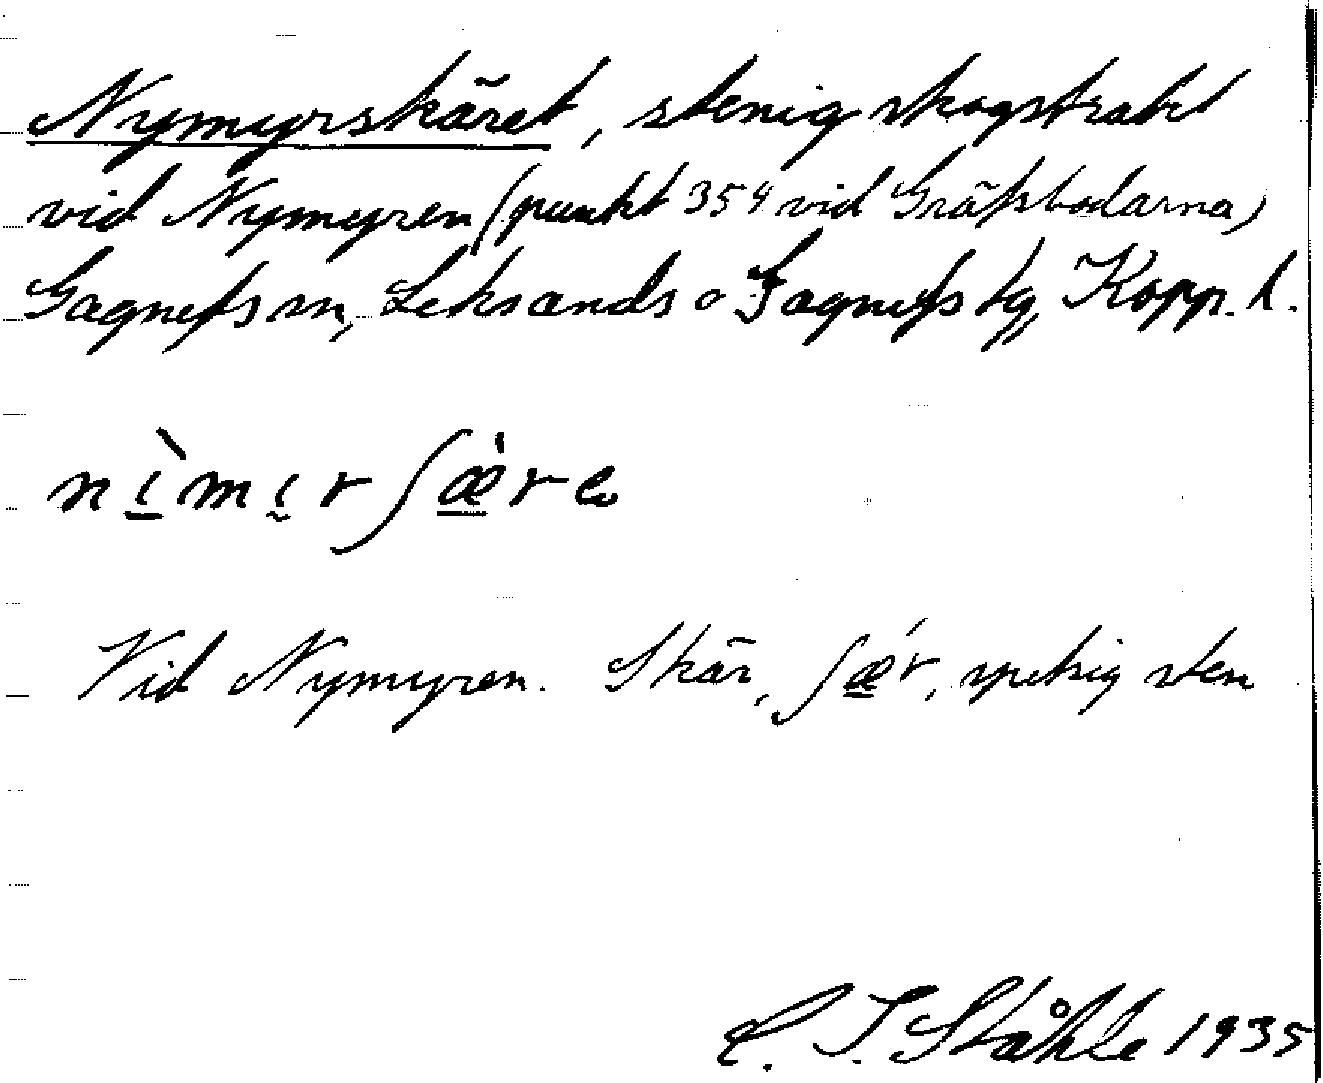 Nymyrskäret, stenig skogstrakt
vid Nymyren (punkt 354 vid Gräfsbodarna)
Gagnefs sn, Leksands o Gagnefs tg, Kopp. l.
nìmırʃæ̀re
Vid Nymyren. Skär, ʃǽr, spetsig sten
C. I. Ståhle 1935